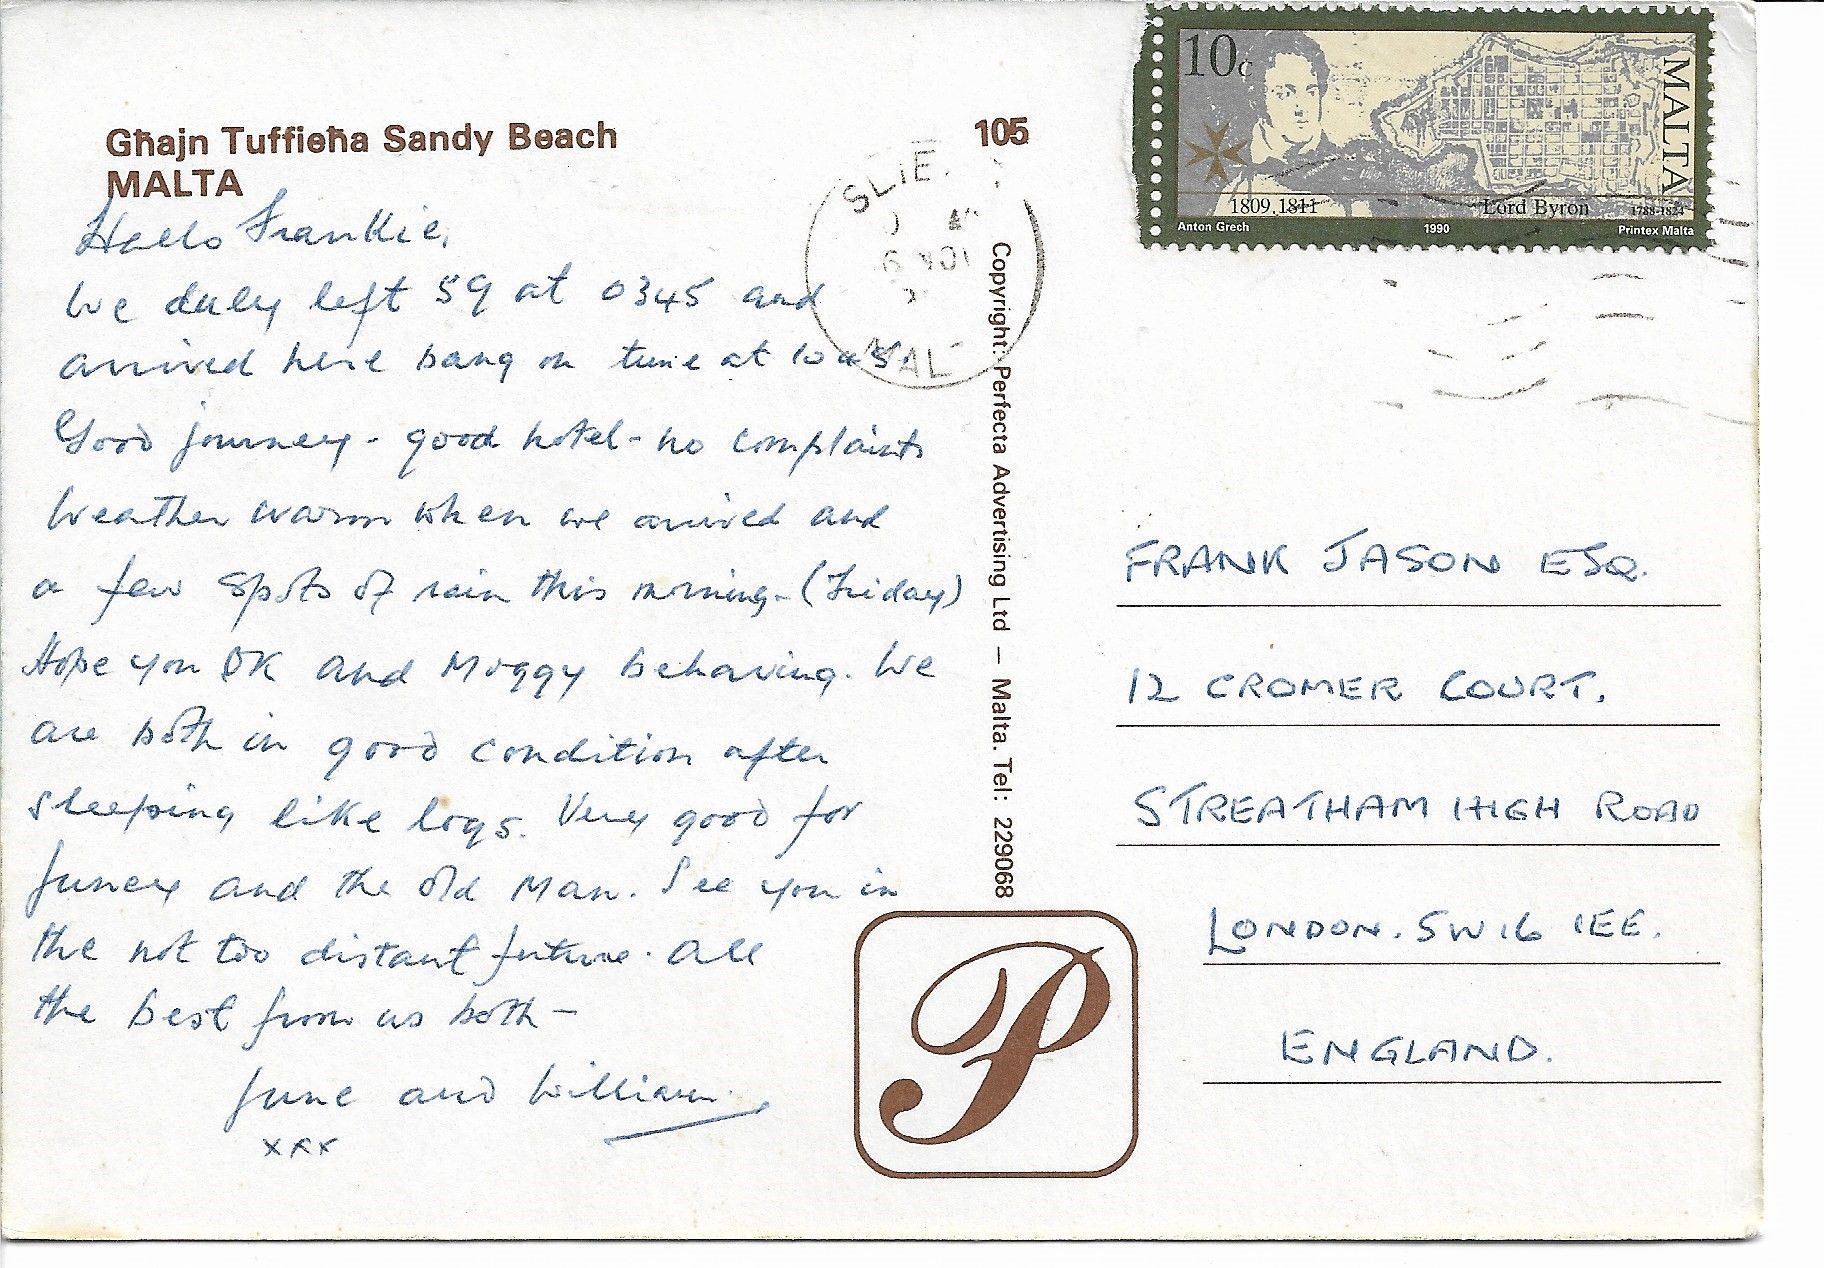 Għajn Tuffieħa Sandy Beach
MALTA
105
Hello Frankie,
We duly left 59 at 0345 and
arrived here bang on time at
Good journey - good hotel - no complaints
Weather warm when we arrived and
a few spots of rain this morning - (Friday)
Hope you OK and Moggy behaving. We
are both in good condition after
sleeping like logs. Very good for
Juney and the old Man. See you in
the not too distant future. All
the best from us both -
June and William
xxx
Copyright: Perfecta Advertising Ltd — Malta. Tel: 229068
P
10c
MALTA
1809, 1811
Lord Byron 1788-1824
Anton Grech 1990 Printex Malta
SLIE
MAL
FRANK JASON ESQ.
12 CROMER COURT.
STREATHAM HIGH ROAD
LONDON. SW16 1EE.
ENGLAND.